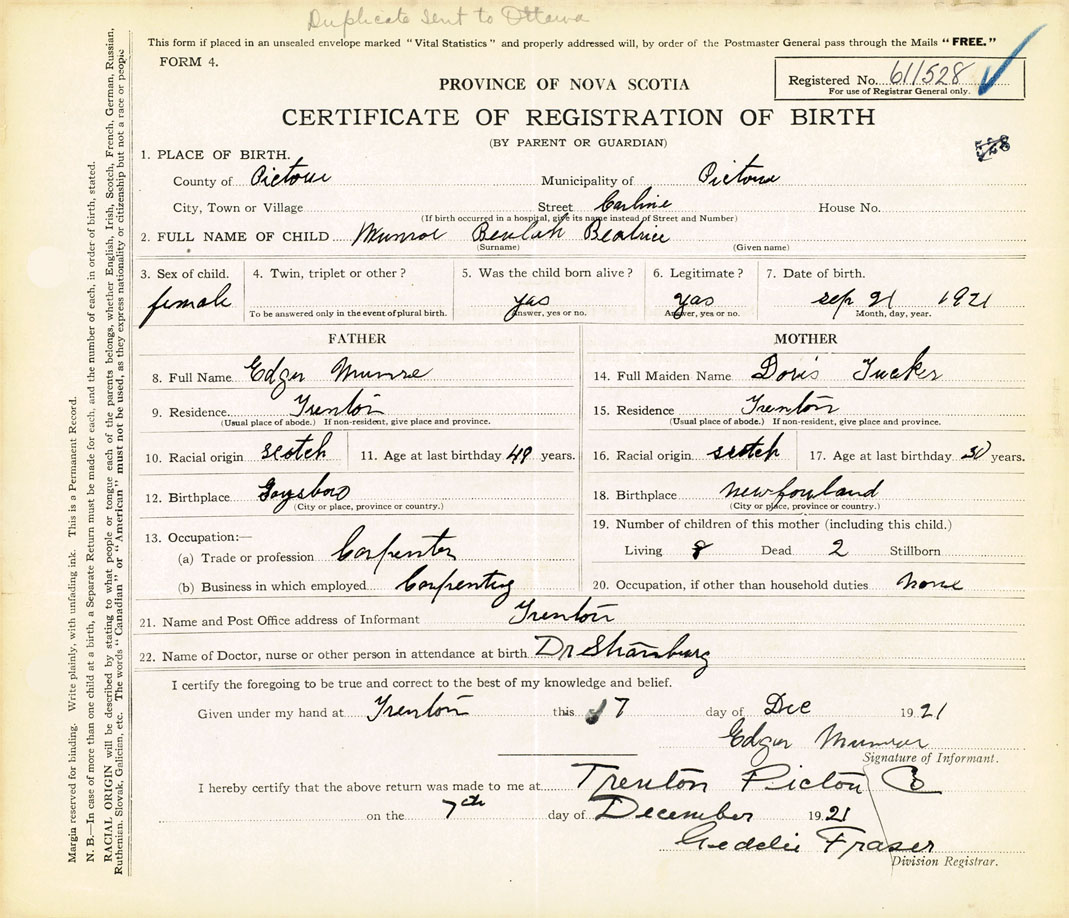 Duplicate Sent to Ottawa
This form if placed in an unsealed envelope marked "Vital Statistics" and properly addressed will, by order of the Postmaster General pass through the Mails "FREE."
FORM 4.
Registered No. 611528
For use of Registrar General only.
PROVINCE OF NOVA SCOTIA
CERTIFICATE OF REGISTRATION OF BIRTH
(BY PARENT OR GUARDIAN)
528
1. PLACE OF BIRTH.
County of Pictou Municipality of Pictou
City, Town or Village Street House No.
(If birth occurred in a hospital, give its name instead of Street and Number)
2. FULL NAME OF CHILD Munroe Beulah Beatrice
(Surname) (Given name)
3. Sex of child. 4. Twin, triplet or other? 5. Was the child born alive? 6. Legitimate? 7. Date of birth.
female yas yas sep 21 1921
To be answered only in the event of plural birth. Answer, yes or no. Answer, yes or no. Month, day, year.
FATHER
8. Full Name Edger Munroe
9. Residence Trenton
(Usual place of abode.) If non-resident, give place and province.
10. Racial origin scotch 11. Age at last birthday 49 years.
12. Birthplace Gaysboro
(City or place, province or country.)
13. Occupation:—
(a) Trade or profession Carpenter
(b) Business in which employed Carpenting
MOTHER
14. Full Maiden Name Doris Tucker
15. Residence Trenton
(Usual place of abode.) If non-resident, give place and province.
16. Racial origin scotch 17. Age at last birthday 30 years.
18. Birthplace newfowland
(City or place, province or country.)
19. Number of children of this mother (including this child.)
Living 8 Dead 2 Stillborn
20. Occupation, if other than household duties none
21. Name and Post Office address of Informant Trenton
22. Name of Doctor, nurse or other person in attendance at birth. Dr
I certify the foregoing to be true and correct to the best of my knowledge and belief.
Given under my hand at Trenton this 7 day of Dec 1921
Edger Munroe
Signature of Informant.
I hereby certify that the above return was made to me at Trenton Pictou Co
on the 7th day of December 1921
Fraser
Division Registrar.
Margin reserved for binding. Write plainly, with unfading ink. This is a Permanent Record.
N. B.—In case of more than one child at a birth, a Separate Return must be made for each, and the number of each, in order of birth, stated.
RACIAL ORIGIN will be described by stating to what people or tongue each of the parents belongs, whether English, Irish, Scotch, French, German, Russian,
Ruthenian, Slovak, Galician, etc. The words "Canadian" or "American" must not be used, as they express nationality or citizenship but not a race or people